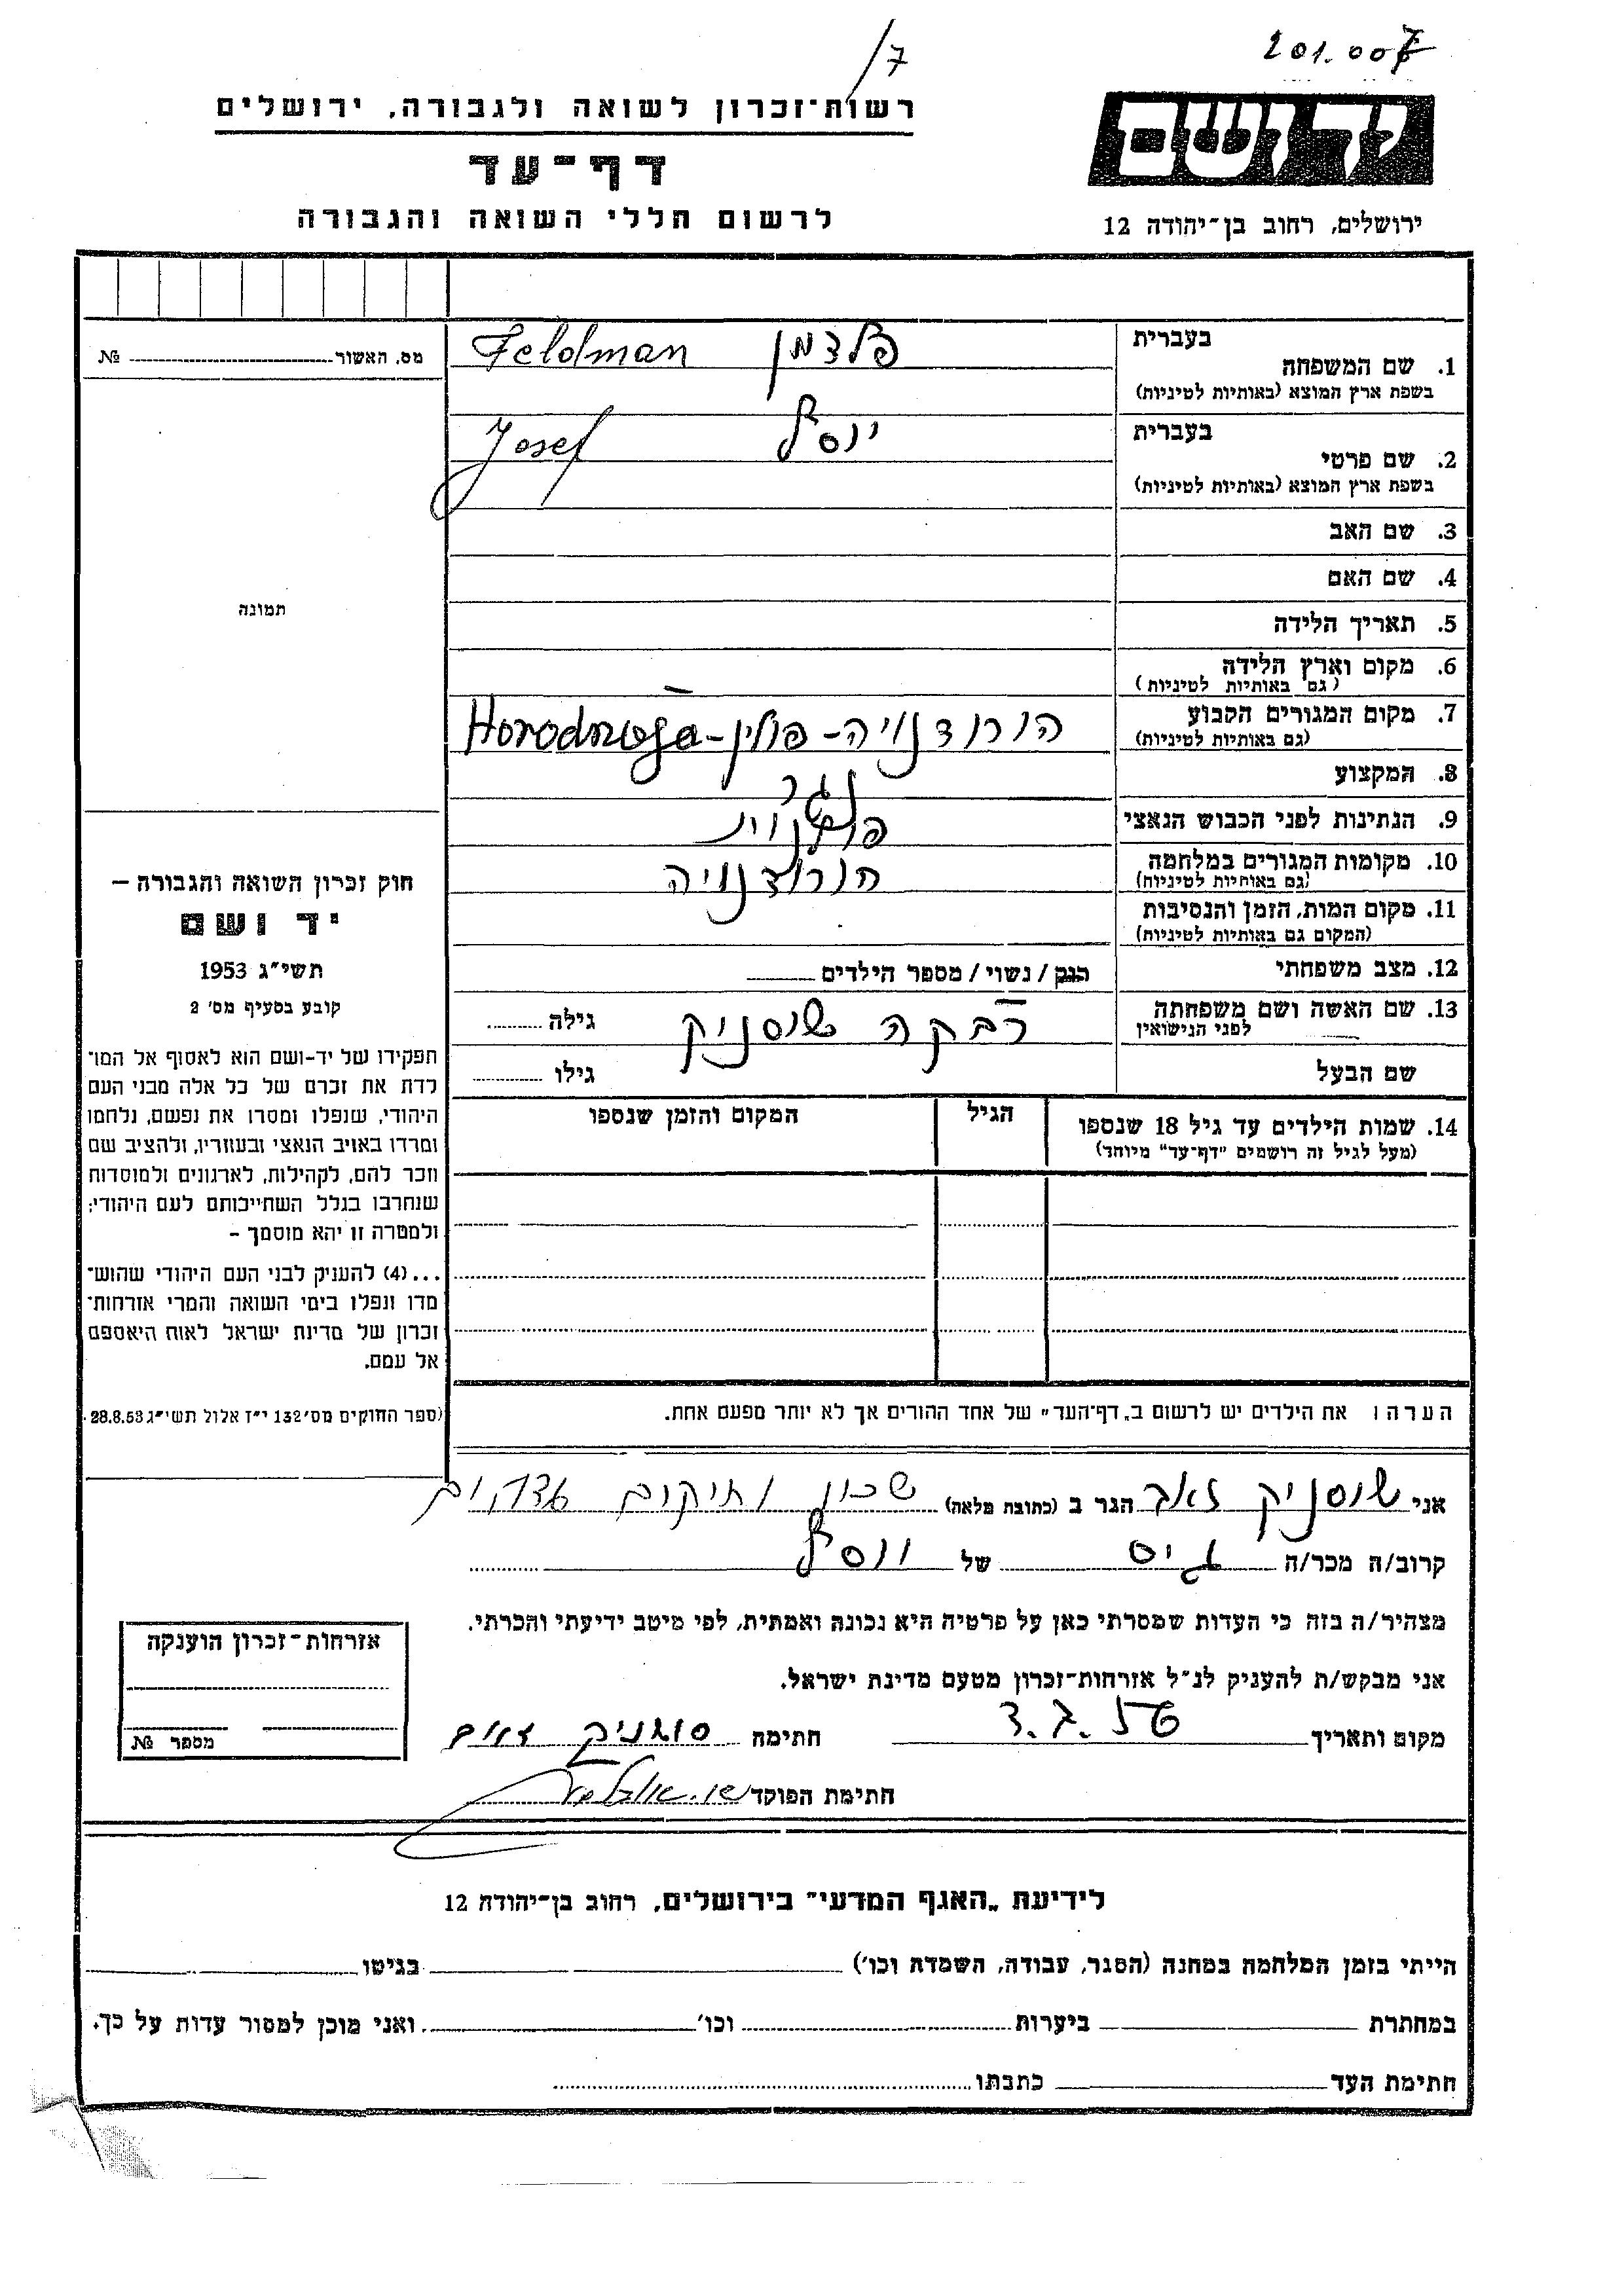 201.007
/7
יד ושם
ירושלים, רחוב בן־יהודה 12
רשות־זכרון לשואה ולגבורה, ירושלים
דף־עד
לרשום חללי השואה והגבורה
מס. האשור № 
תמונה
חוק זכרון השואה והגבורה –
יד ושם
תשי״ג 1953
קובע בסעיף מס׳ 2
תפקידו של יד-ושם הוא לאסוף אל המו־
לדת את זכרם של כל אלה מבני העם
היהודי, שנפלו ומסרו את נפשם, נלחמו
ומרדו באויב הנאצי ובעוזריו, ולהציב שם
וזכר להם, לקהילות, לארגונים ולמוסדות
שנחרבו בגלל השתייכותם לעם היהודי;
ולמטרה זו יהא מוסמך –
...(4) להעניק לבני העם היהודי שהוש־
מדו ונפלו בימי השואה והמרי אזרחות־
זכרון של מדינת ישראל לאות היאספם
אל עמם.
(ספר החוקים מס׳ 132 י״ז אלול תשי״ג 28.8.53.
בעברית
1. שם המשפחה פלדמן Feldman
בשפת ארץ המוצא (באותיות לטיניות)
בעברית
2. שם פרטי יוסף Josef
בשפת ארץ המוצא (באותיות לטיניות)
3. שם האב
4. שם האם
5. תאריך הלידה
6. מקום וארץ הלידה
(גם באותיות לטיניות)
7. מקום המגורים הקבוע הורודנויה - פולין -
(גם באותיות לטיניות)
8. המקצוע נגר
9. הנתינות לפני הכבוש הנאצי פולנית
10. מקומות המגורים במלחמה הורודנויה
(גם באותיות לטיניות)
11. מקום המות, הזמן והנסיבות
(המקום גם באותיות לטיניות)
12. מצב משפחתי רווק / נשוי / מספר הילדים
13. שם האשה ושם משפחתה רבקה שוסניק גילה
לפני הנישואין
שם הבעל גילו
14. שמות הילדים עד גיל 18 שנספו הגיל המקום והזמן שנספו
(מעל לגיל זה רושמים "דף-עד" מיוחד)
הערה ו את הילדים יש לרשום ב„דף־העד" של אחד ההורים אך לא יותר מפעם אחת.
אני שוסניק זאב הגר ב (כתובת מלאה) שכון ותיקים
קרוב/ה מכר/ה גיס של יוסף
מצהיר/ה בזה כי העדות שמסרתי כאן על פרטיה היא נכונה ואמתית, לפי מיטב ידיעתי והכרתי.
אני מבקש/ת להעניק לנ״ל אזרחות־זכרון מטעם מדינת ישראל.
מקום ותאריך חתימה
חתימת הפוקד
אזרחות־זכרון הוענקה
מספר №
לידיעת „האגף המדעי" בירושלים, רחוב בן־יהודה 12
הייתי בזמן המלחמה במחנה (הסגר, עבודה, השמדה וכו׳) בגיטו
במחתרת ביערות וכו׳ ואני מוכן למסור עדות על כך.
חתימת העד כתבתו